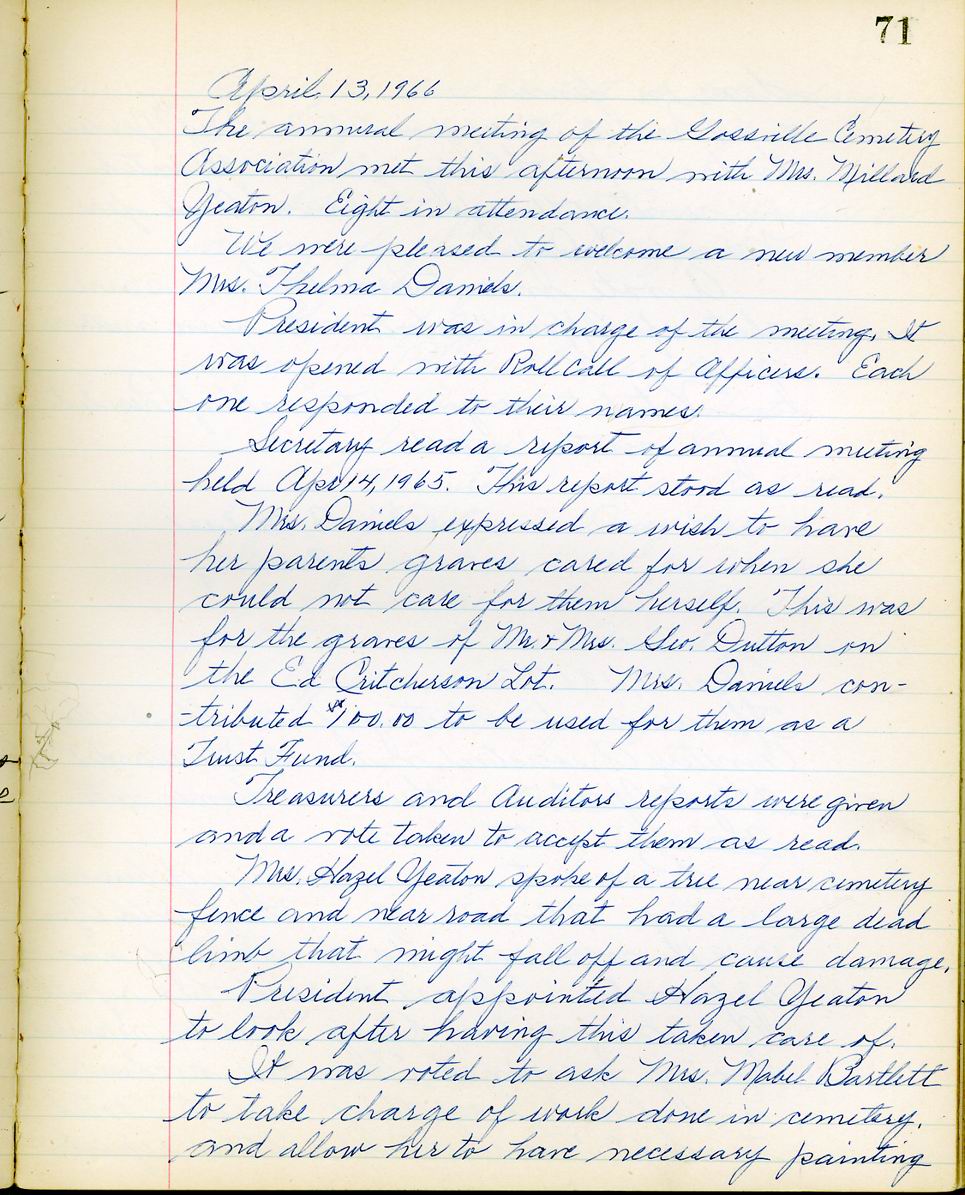 71
April 13, 1966
The annual meeting of the Gossville Cemetery
Association met this afternoon with Mrs. Millard
Yeaton. Eight in attendance.
We were pleased to welcome a new member
Mrs. Thelma Daniels.
President was in charge of the meeting. It
was opened with Roll Call of Officers. Each
one responded to their names.
Secretary read a report of annual meeting
held Apr 14, 1965. This report stood as read.
Mrs. Daniels expressed a wish to have
her parents graves cared for when she
could not care for them herself. This was
for the graves of Mr. & Mrs. Geo. Dutton on
the Ed Critcherson Lot. Mrs. Daniels con-
-tributed $100.00 to be used for them as a
Trust Fund.
Treasurers and Auditors reports were given
and a vote taken to accept them as read.
Mrs. Hazel Yeaton spoke of a tree near cemetery
fence and near road that had a large dead
limb that might fall off and cause damage.
President appointed Hazel Yeaton
to look after having this taken care of.
It was voted to ask Mrs. Mabel Bartlett
to take charge of work done in cemetery.
and allow her to have necessary painting